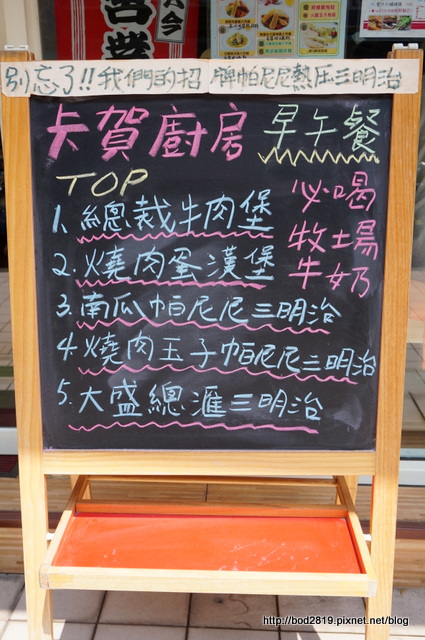 今
營業
別忘了!!我們的招牌帕尼尼熱压三明治
卡賀廚房 早午餐
TOP
1. 總裁牛肉堡
2. 燒肉蛋漢堡
3. 南瓜帕尼尼三明治
4. 燒肉玉子帕尼尼三明治
5. 大盛總滙三明治
必喝
牧場
牛奶
http://bod2819.pixnet.net/blog